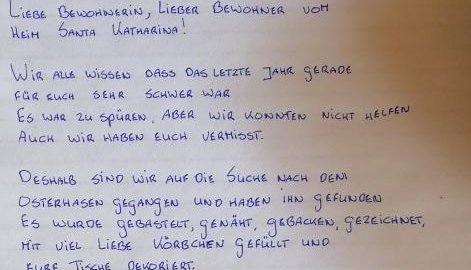 LIEBE BEWOHNERIN, LIEBER BEWOHNER VOM
HEIM SANTA KATHARINA!
WIR ALLE WISSEN DASS DAS LETZTE JAHR GERADE
FÜR EUCH SEHR SCHWER WAR
ES WAR ZU SPÜREN, ABER WIR KONNTEN NICHT HELFEN
AUCH WIR HABEN EUCH VERMISST.
DESHALB SIND WIR AUF DIE SUCHE NACH DEM
OSTERHASEN GEGANGEN UND HABEN IHN GEFUNDEN
ES WURDE GEBASTELT, GENÄHT, GEBACKEN, GEZEICHNET,
MIT VIEL LIEBE KÖRBCHEN GEFÜLLT UND
EURE TISCHE DEKORIERT.